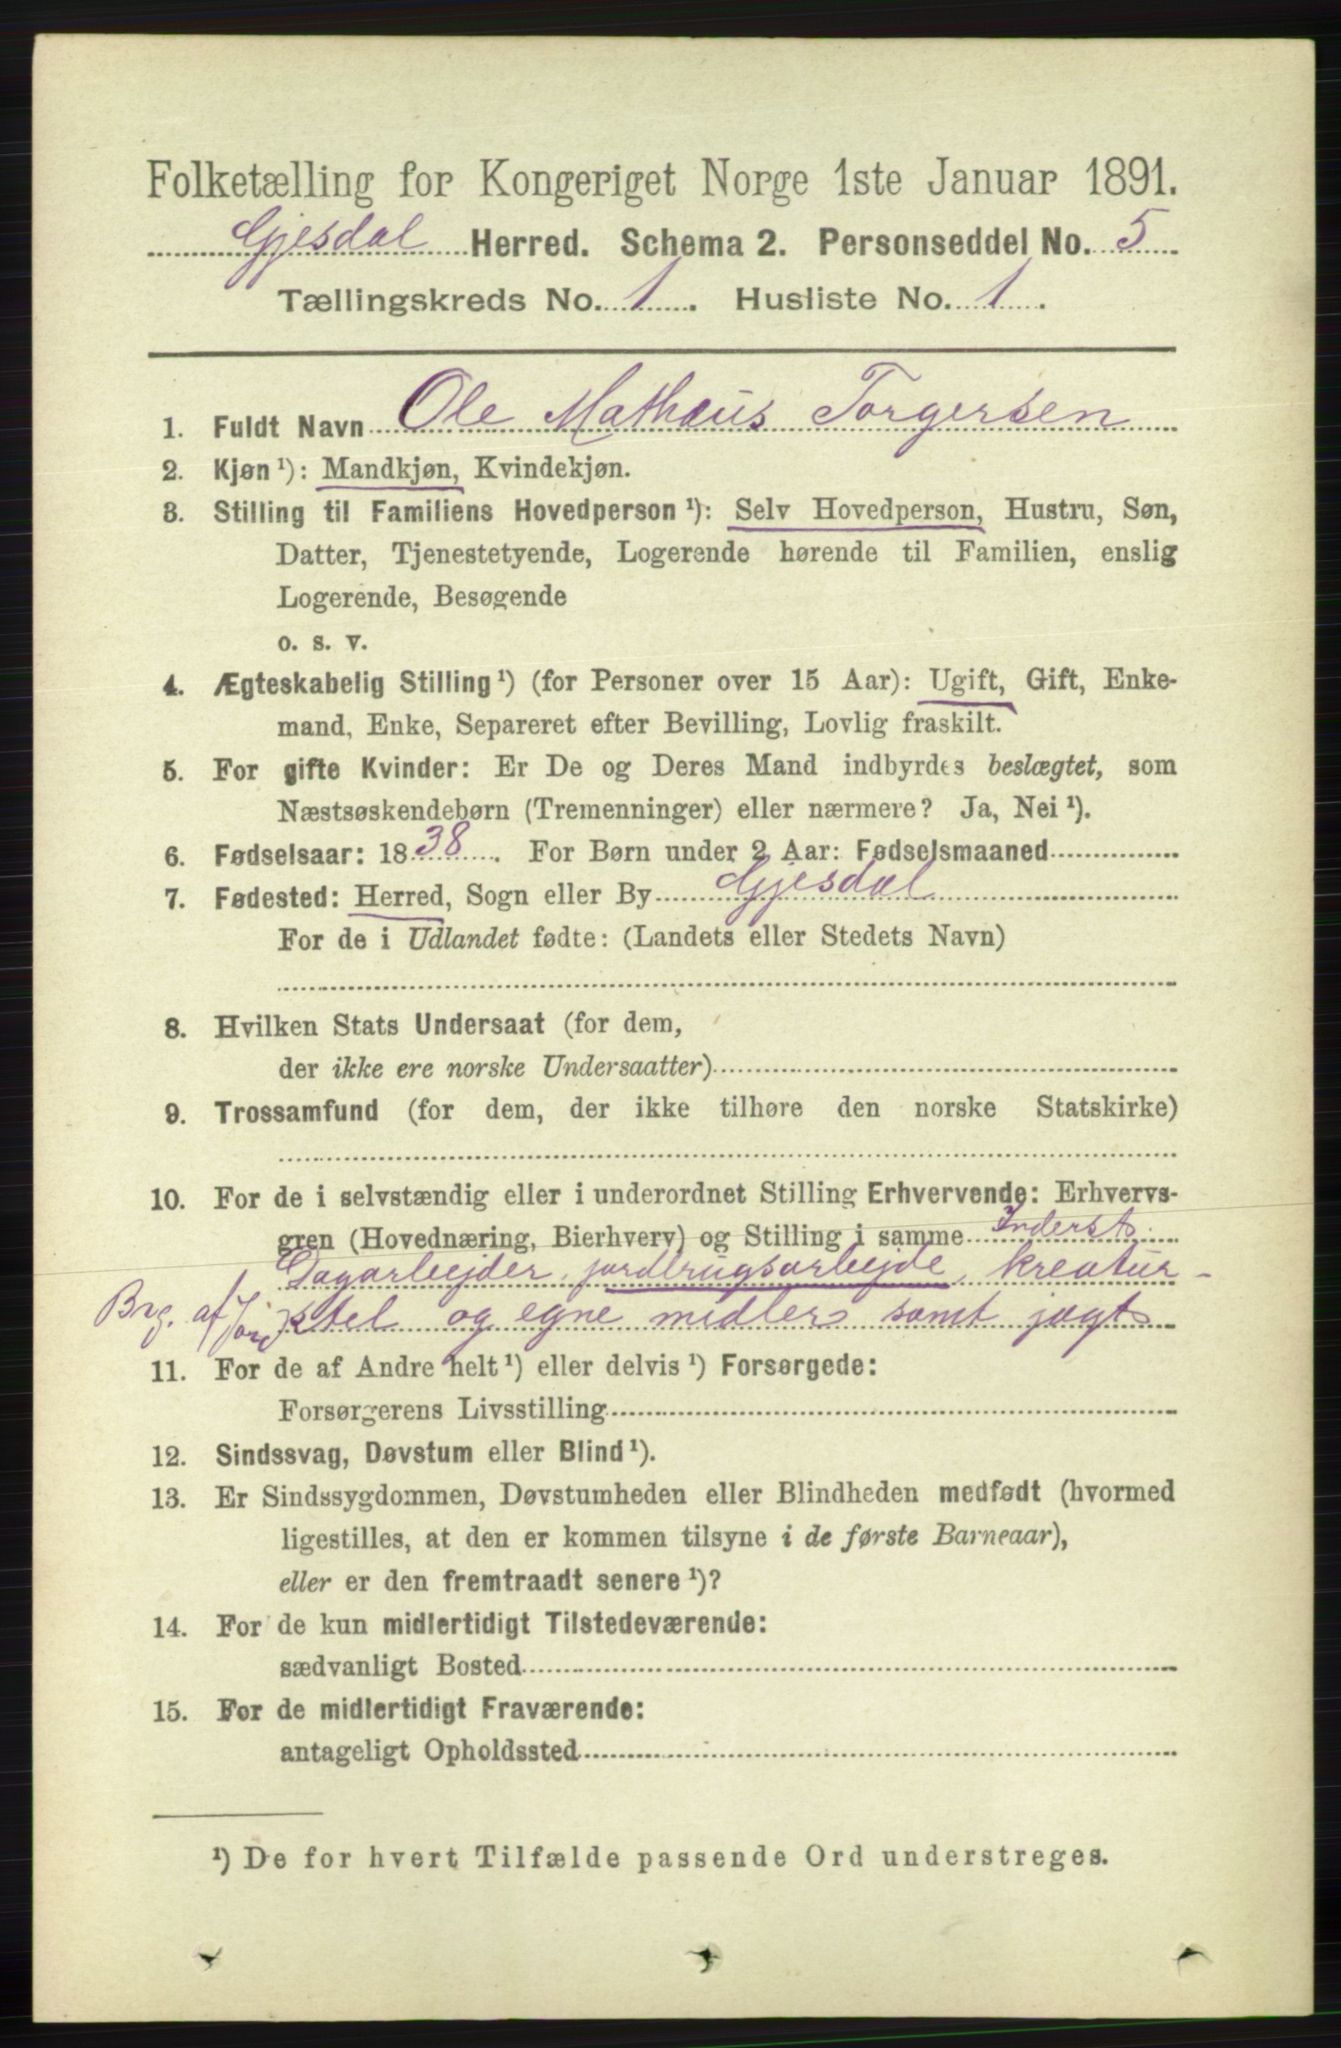 Folketælling for Kongeriget Norge 1ste Januar 1891.
Gjesdal Herred. Schema 2. Personseddel No. 5
Tællingskreds No. 1. Husliste No. 1.
1. Fuldt Navn Ole Mathæus Torgersen
2. Kjøn¹): Mandkjøn, Kvindekjøn.
3. Stilling til Familiens Hovedperson¹): Selv Hovedperson, Hustru, Søn,
Datter, Tjenestetyende, Logerende hørende til Familien, enslig
Logerende, Besøgende
o. s. v.
4. Ægteskabelig Stilling¹) (for Personer over 15 Aar): Ugift, Gift, Enke-
mand, Enke, Separeret efter Bevilling, Lovlig fraskilt.
5. For gifte Kvinder: Er De og Deres Mand indbyrdes beslægtet, som
Næstsøskendebørn (Tremenninger) eller nærmere? Ja, Nei¹).
6. Fødselsaar: 1838. For Børn under 2 Aar: Fødselsmaaned
7. Fødested: Herred, Sogn eller By Gjesdal
For de i Udlandet fødte: (Landets eller Stedets Navn)
8. Hvilken Stats Undersaat (for dem,
der ikke ere norske Undersaatter)
9. Trossamfund (for dem, der ikke tilhøre den norske Statskirke)
10. For de i selvstændig eller i underordnet Stilling Erhvervende: Erhvervs-
gren (Hovednæring, Bierhverv) og Stilling i samme Inderst.
Dagarbejder, jordbrugsarbejde, kreatur-
Brg. af Jord stel og egne midler samt jagt
11. For de af Andre helt¹) eller delvis¹) Forsørgede:
Forsørgerens Livsstilling
12. Sindssvag, Døvstum eller Blind¹).
13. Er Sindssygdommen, Døvstumheden eller Blindheden medfødt (hvormed
ligestilles, at den er kommen tilsyne i de første Barneaar),
eller er den fremtraadt senere¹)?
14. For de kun midlertidigt Tilstedeværende:
sædvanligt Bosted
15. For de midlertidigt Fraværende:
antageligt Opholdssted
¹) De for hvert Tilfælde passende Ord understreges.